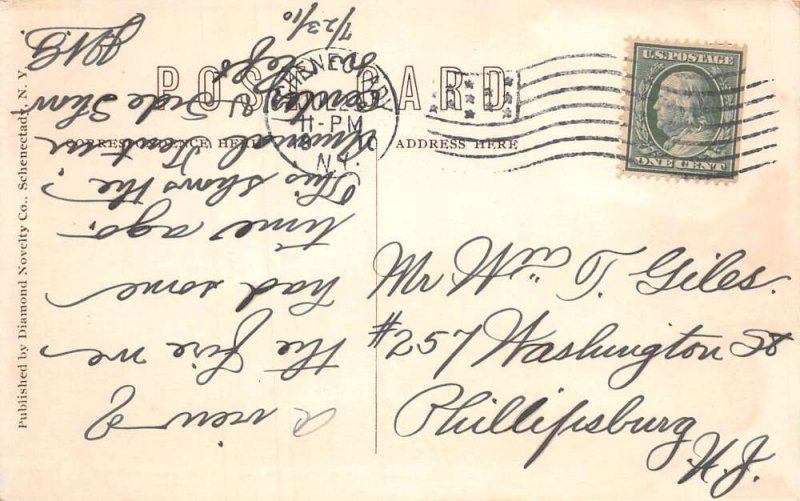 POST CARD
CORRESPONDENCE HERE
ADDRESS HERE
Published by Diamond Novelty Co., Schenectady, N. Y.
SCHENECTADY
11-PM
N.Y.
U.S. POSTAGE
ONE CENT
Mr Wm T. Giles.
#257 Washington St
Phillipsburg
N.J.
a view of
the fire we
had some
time ago.
This shows the
Animal
& Side Show
left
7/23/10